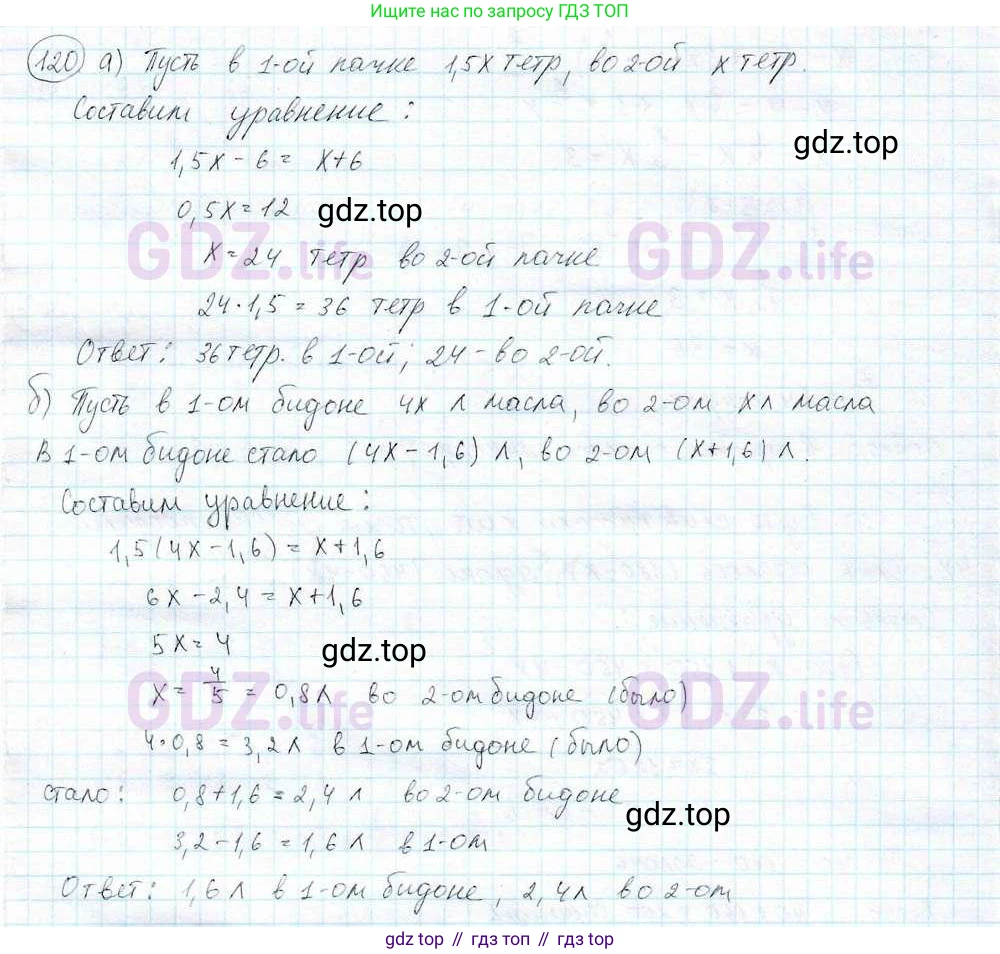 Ищите нас по запросу ГДЗ ТОП
120 а) Пусть в 1-ой пачке 1,5x тетр, во 2-ой x тетр.
Составим уравнение:
gdz.top
1,5x - 6 = x+6
0,5x = 12 gdz.top
GDZ.life GDZ.life
x = 24 тетр во 2-ой пачке
24·1,5 = 36 тетр в 1-ой пачке
Ответ: 36 тетр. в 1-ой; 24 - во 2-ой.
б) Пусть в 1-ом бидоне 4x л масла, во 2-ом x л масла
В 1-ом бидоне стало (4x - 1,6) л, во 2-ом (x+1,6) л.
Составим уравнение:
1,5(4x - 1,6) = x+1,6
6x - 2,4 = x+1,6
5x = 4 gdz.top
x = 4/5 = 0,8 л во 2-ом бидоне (было)
GDZ.life GDZ.life
4·0,8 = 3,2 л в 1-ом бидоне (было)
стало: 0,8+1,6 = 2,4 л во 2-ом бидоне
gdz.top
3,2-1,6 = 1,6 л в 1-ом
Ответ: 1,6 л в 1-ом бидоне; 2,4 л во 2-ом
gdz top // гдз топ // gdz top